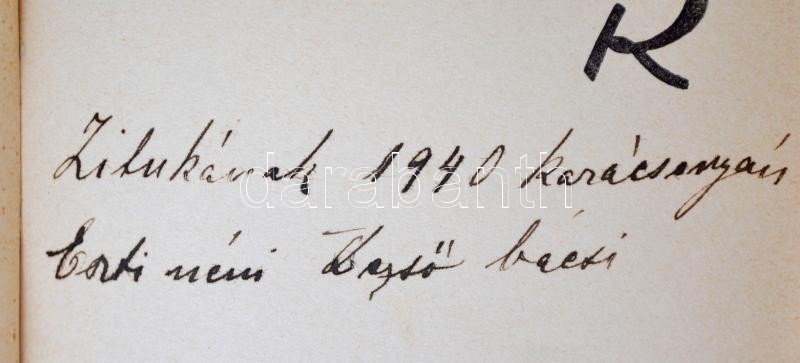 K
Zitukának 1940 karácsonyán
Erzti néni Dezső bácsi
darabanth